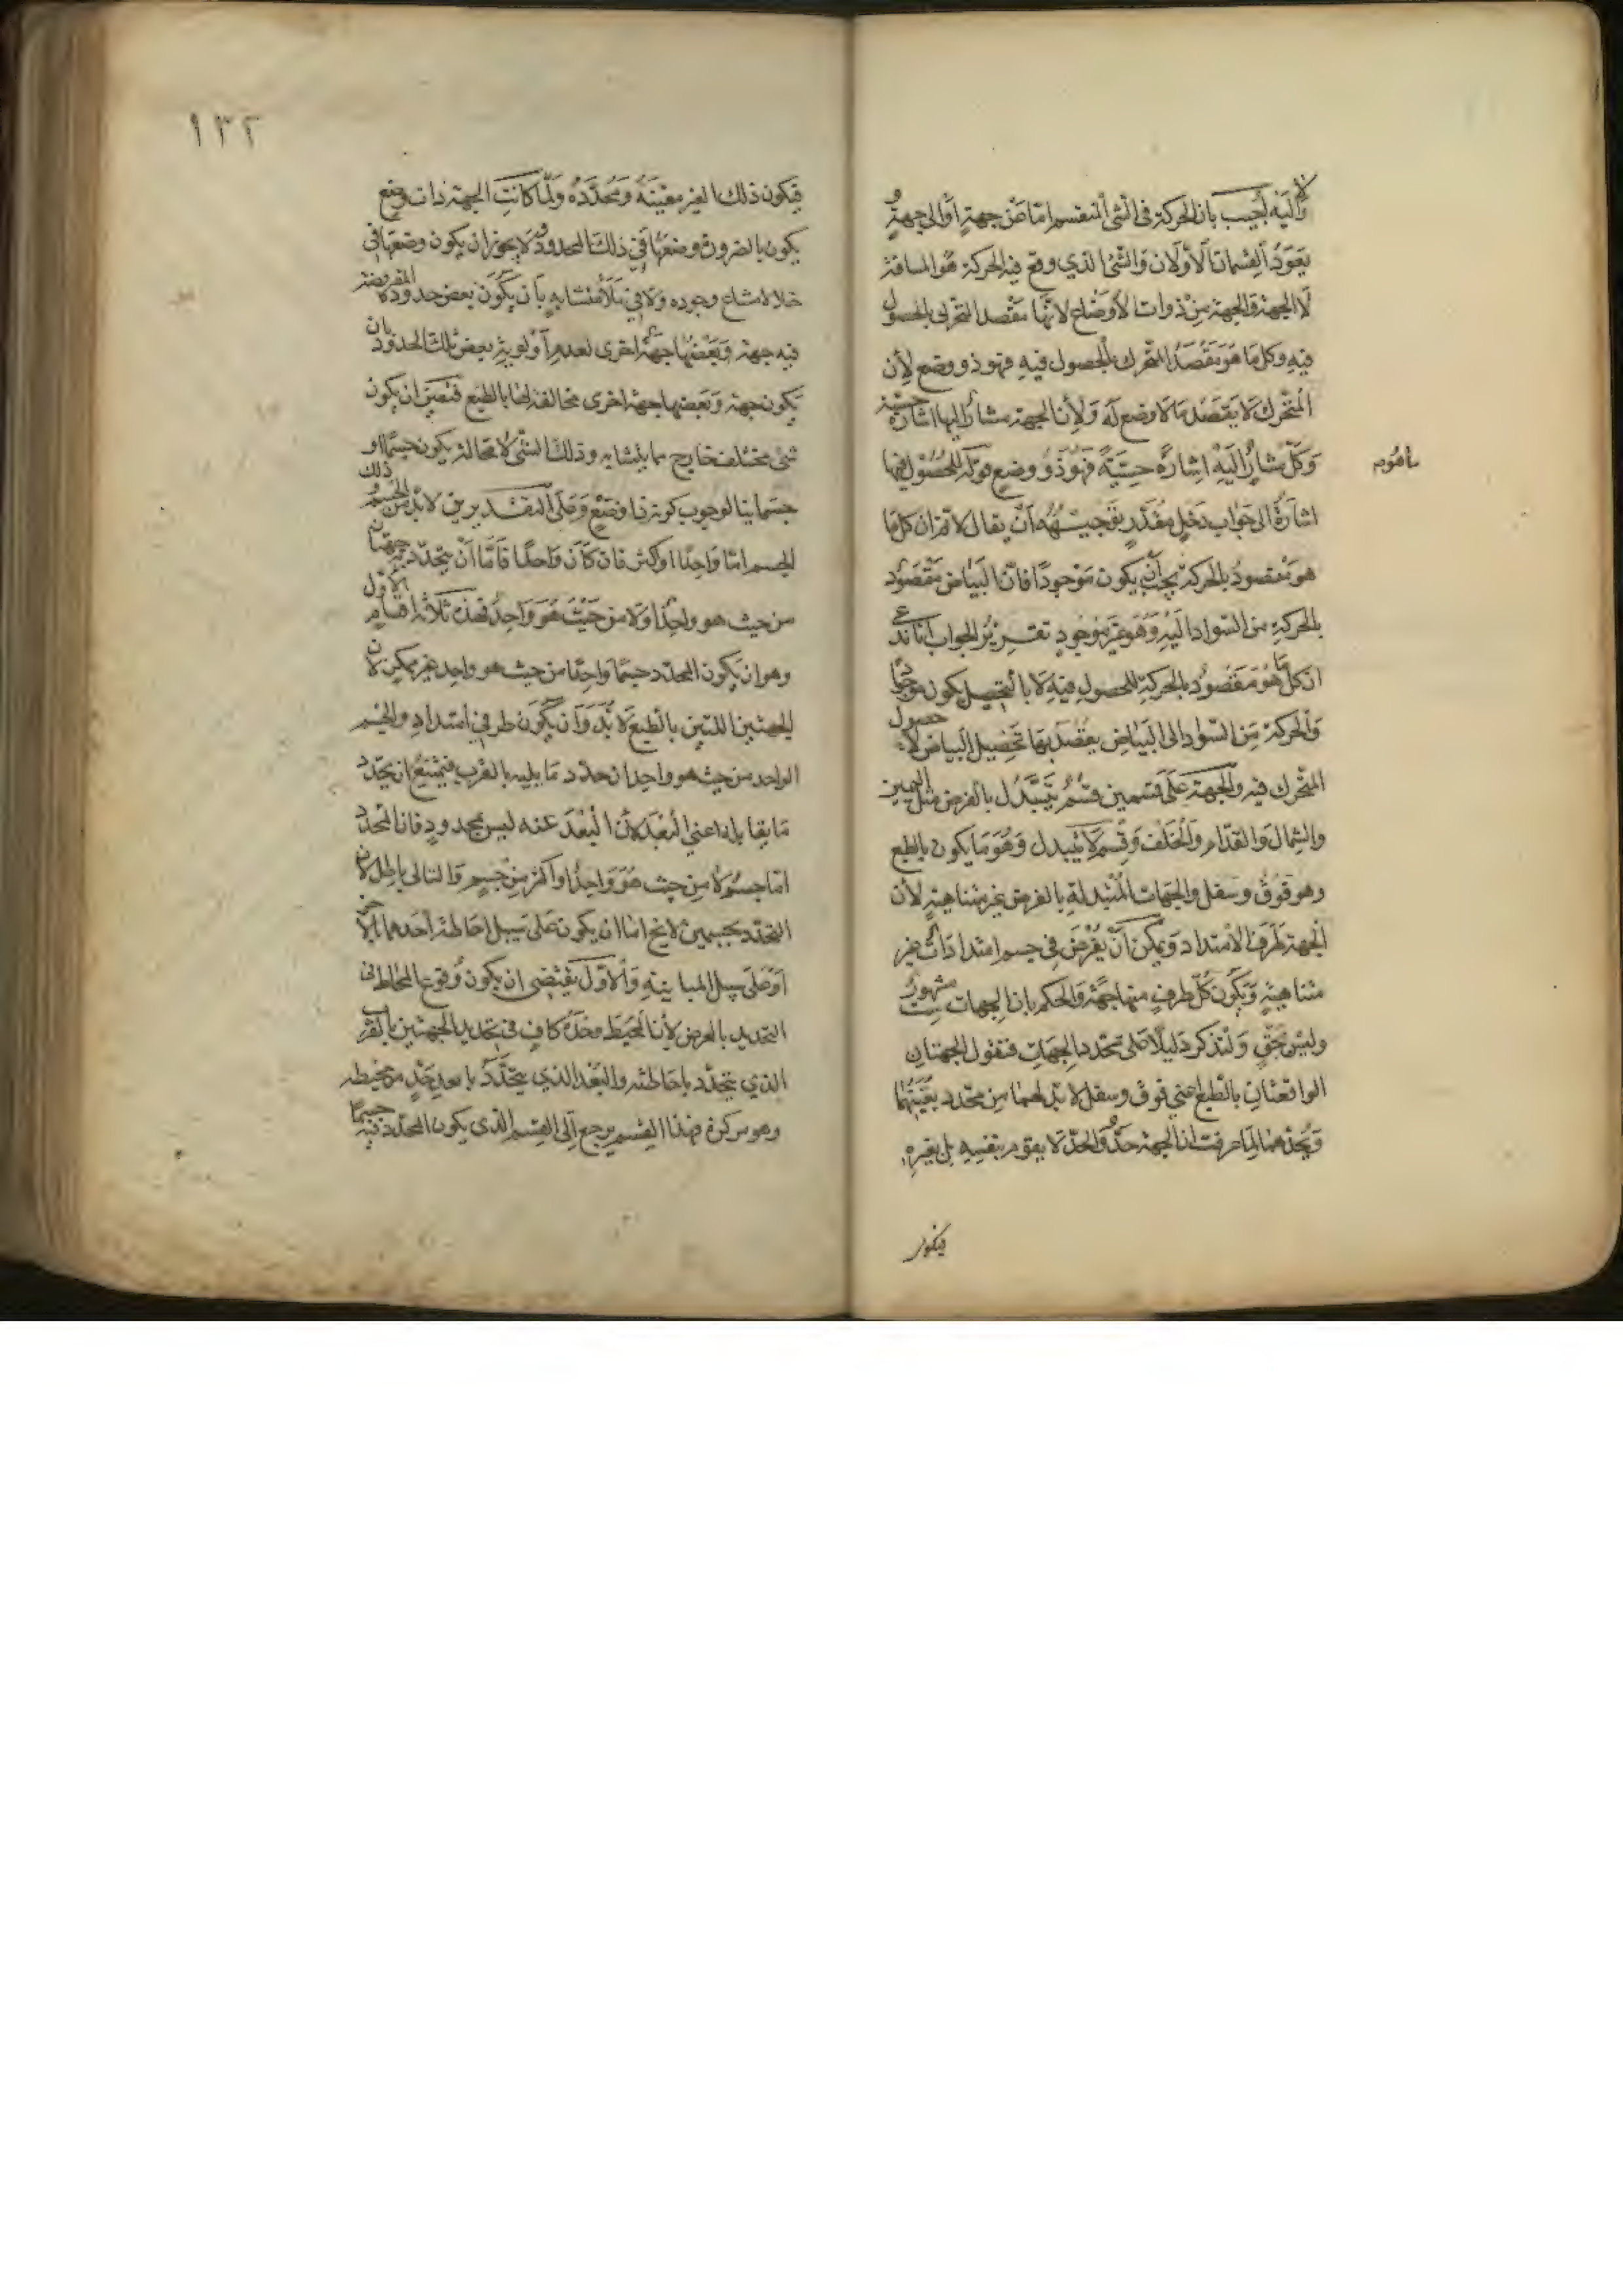 واليه لا اجيب بان الحركة فى الشئ المنقسم اما عن جهة او الى جهة و
يعود القسمان الاولان والشئ الذي وقع فيه الحركة هو المسافة
لا الجهة والجهة من ذوات الاوضاع لانها مقصد المتحرك بالحصول
فيه وكل ما هو مقصد المتحرك بالحصول فيه فهو ذو وضع لأن
المتحرك لا يقصد ما لا وضع له ولأن الجهة مشار اليها اشارة حسية
وكل مشار اليه اشارة حسية فهو ذو وضع قوله للحصول فيها
اشارة الى جواب دخل مقدر توجيهه ان يقال لا نم ان كل ما
هو مقصود بالحركة يجب ان يكون موجودا فان البياض مقصود
بالحركة من السواد اليه وهو غير موجود تقرير الجواب انا ندعى
ان كل ما هو مقصود بالحركة للحصول فيه لا بالتحصيل يكون موجودا
والحركة من السواد الى البياض يقصد بها تحصيل البياض لا حصول
المتحرك فيه والجهة على قسمين قسم يتبدل بالفرض مثل اليمين
والشمال والقدام والخلف وقسم لا يتبدل وهو ما يكون بالطبع
وهو فوق وسفل والجهات المتبدلة بالفرض غير متناهية لأن
الجهة طرف الامتداد ويمكن أن يفرض في جسم امتدادات غير
متناهية ويكون كل طرف منها جهة والحكم بان الجهات ست مشهور
وليس بحق ولنذكر دليلا على تحدد الجهات فنقول الجهتان
الواقعتان بالطبع اعني فوق وسفل لا بد لهما من محدد يعينهما
ويحدهما لما عرفت ان الجهة حد والحد لا يقوم بنفسه بل بغيره
فيكون
١٣٢
فيكون ذلك الغير معينة ومحدده ولما كانت الجهة ذات وضع
يكون بالضرورة وضعها في ذلك المحدود ولا يجوز ان يكون وضعها في
خلا لامتناع وجوده ولا في ملأ متشابه بأن يكون بعض حدوده المفروضة
فيه جهة وبعضها جهة اخرى لعدم أولوية بعض تلك الحدود بان
يكون جهة وبعضها جهة اخرى مخالفة لها بالطبع فتعين ان يكون
شئ مختلف خارج مما يتشابه وذلك الشئ لا محالة يكون جسما او
جسمانيا لوجوب كونه ذا وضع وعلى التقديرين لا بد من الجسم و ذلك
الجسم اما واحدا او اكثر فان كان واحدا فاما أن يتحدد به جهتان
من حيث هو واحد او لا من حيث هو واحد فهذه ثلاثة اقسام الاول
وهو ان يكون المحدد جسما واحدا من حيث هو واحد غير ممكن لان
الجهتين اللتين بالطبع لا بد وان يكون طرفي امتداد والجسم
الواحد من حيث هو واحد ان حدد ما يليه بالقرب فيمتنع ان يحدد
ما يقابله اعني البعد لأن البعد عنه ليس بمحدود فان المحدد
اما جسم لا من حيث هو واحد او اكثر من جسم والتالى باطل لان
التحدد بجسمين لا يخ اما ان يكون على سبيل احاطة احدهما بالآخر
او على سبيل المباينة والاول يقتضى ان يكون وقوع المحاط فى
التحديد بالعرض لأن المحيط وحده كاف فى تحديد الجهتين بالقرب
الذي يتحدد باحاطته والبعد الذي يتحدد بابعد حد من محيطه
وهو مركزه فهذا القسم يرجع إلى القسم الذى يكون المحدد فيه جسما